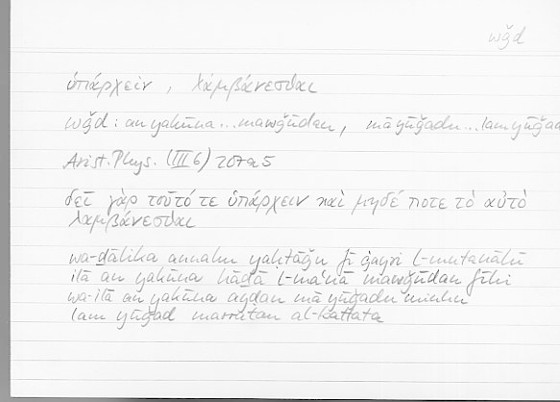 wǧd
ὑπάρχειν, λαμβάνεσθαι
wǧd: an yakūna... mawǧūdan, mā yūǧadu... lam yūǧad
Arist. Phys. (III 6) 207a5
δεῖ γὰρ τοῦτό τε ὑπάρχειν καὶ μηδέ ποτε τὸ αὐτὸ
λαμβάνεσθαι
wa-ḏālika annahu yaḥtāǧu fī ġayri l-mutanāhī
ilā an yakūna hāḏā l-maʿnā mawǧūdan fīhi
wa-ilā an yakūna ayḍan mā yūǧadu minhu
lam yūǧad marratan al-battata